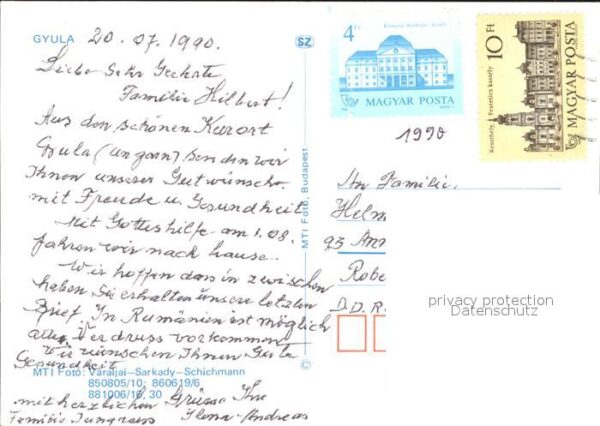 GYULA 20.07.1990.
SZ
Liebe Sehr Geehrte
Familie Hilbert!
Aus den schönen Kurort
Gyula (Ungarn) senden wir
Ihnen unserer Gutwünsche
mit Freude u. Gesundheit
Mit Gotteshilfe am 1.08.
fahren wir nach hause.
Wir hoffen dass in zwischen
haben Sie erhalten unsere letzten
Brief. In Rumänien ist möglich
alle Verdruss vorkommen
Wir wünschen Ihnen Gute
Gesundheit
MTI Fotó: Váraljai–Sarkady–Schichmann
850805/10; 860619/6
881006/16, 30
mit herzlichen Grüsse Ihre
Familie Ilona-Andreas
MTI Fotó, Budapest
©
4 Ft
MAGYAR POSTA
10 Ft
Keszthely Festetics kastély
MAGYAR POSTA
1990
An Familie
Helm
93 Ann
Robe
D.D.R
privacy protection
Datenschutz